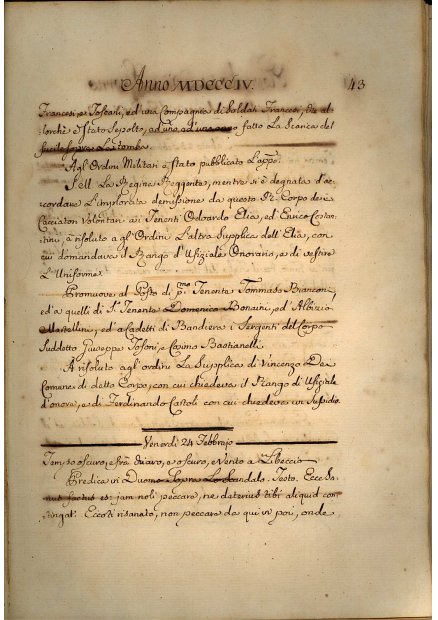 Anno MDCCCIV. 43
Francesi, e Toscani, ed una Compagnia di Soldati Francesi, che al-
lorchè è stato Sepolto, ad uno, ad uno anno fatto La Scarica del
fucile sopra La tomba.
Agl' Ordini Militari è stato pubblicato L'appo:
S. M. La Regina Reggente, mentre si è degnata d'ac-
cordare L'implorata demissione da questo Rl. Corpo dei
Cacciatori Volontari ai Tenenti Odoardo Elia, ed Enrico Costan-
tini, à risoluto agl' Ordini L'altra Supplica dell' Elia, con
cui domandava il Rango d'Ufiziale Onorario, e di vestire
L'Uniforme
Promuove al Posto di pmo. Tenente Tommaso Branconi,
ed' a quelli di S. Tenente Domenico Bonaini, ed' Albizio
Martellini, ed' a Cadetti di Bandiera i Sergenti del Corpo
Suddetto Giuseppe Tosoni, e Cosimo Bastianelli
A risoluto agl' ordini La Supplica di Vincenzo Dei
Comune di detto Corpo, con cui chiedeva il Rango di Ufiziale
d'onore, e di Ferdinando Castoli con cui chiedeva un Sussidio.
Venerdì 24 Febbrajo
Tempo oscuro, e poi, e oscuro, e Vento a Libeccio
Predica in Duomo Sopra Lo Scandalo. Testo. Ecce Sa-
nus factus es: jam noli peccare, ne deterius tibi aliquid con-
tingat. Eccoti risanato, non peccare da qui in poi, onde